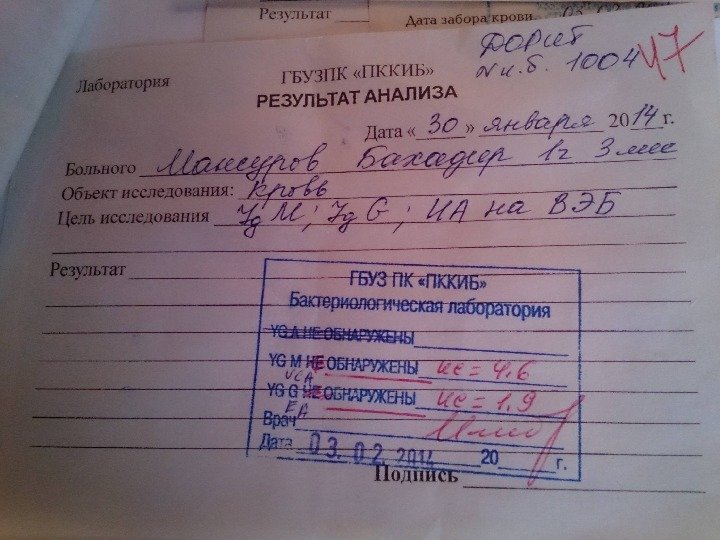 Результат
Дата забора крови
ДОРИТ
N и.б. 1004
47
Лаборатория
ГБУЗПК «ПККИБ»
РЕЗУЛЬТАТ АНАЛИЗА
Дата « 30 » января 2014 г.
Больного Мансуров Бахадир 1г 3 мес
Объект исследования: кровь
Цель исследования Ig M; Ig G; ИА на ВЭБ
Результат
ГБУЗ ПК «ПККИБ»
Бактериологическая лаборатория
YG A НЕ ОБНАРУЖЕНЫ
YG M НЕ ОБНАРУЖЕНЫ ИС = 4.6
VCA
YG G НЕ ОБНАРУЖЕНЫ ИС = 1.9
EA
Врач
Дата 03.02.2014 20 г.
Подпись